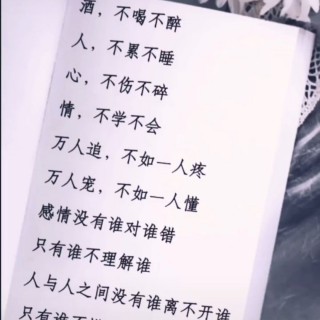 酒，不喝不醉
人，不累不睡
心，不伤不碎
情，不学不会
万人追，不如一人疼
万人宠，不如一人懂
感情没有谁对谁错
只有谁不理解谁
人与人之间没有谁离不开谁
只有谁不